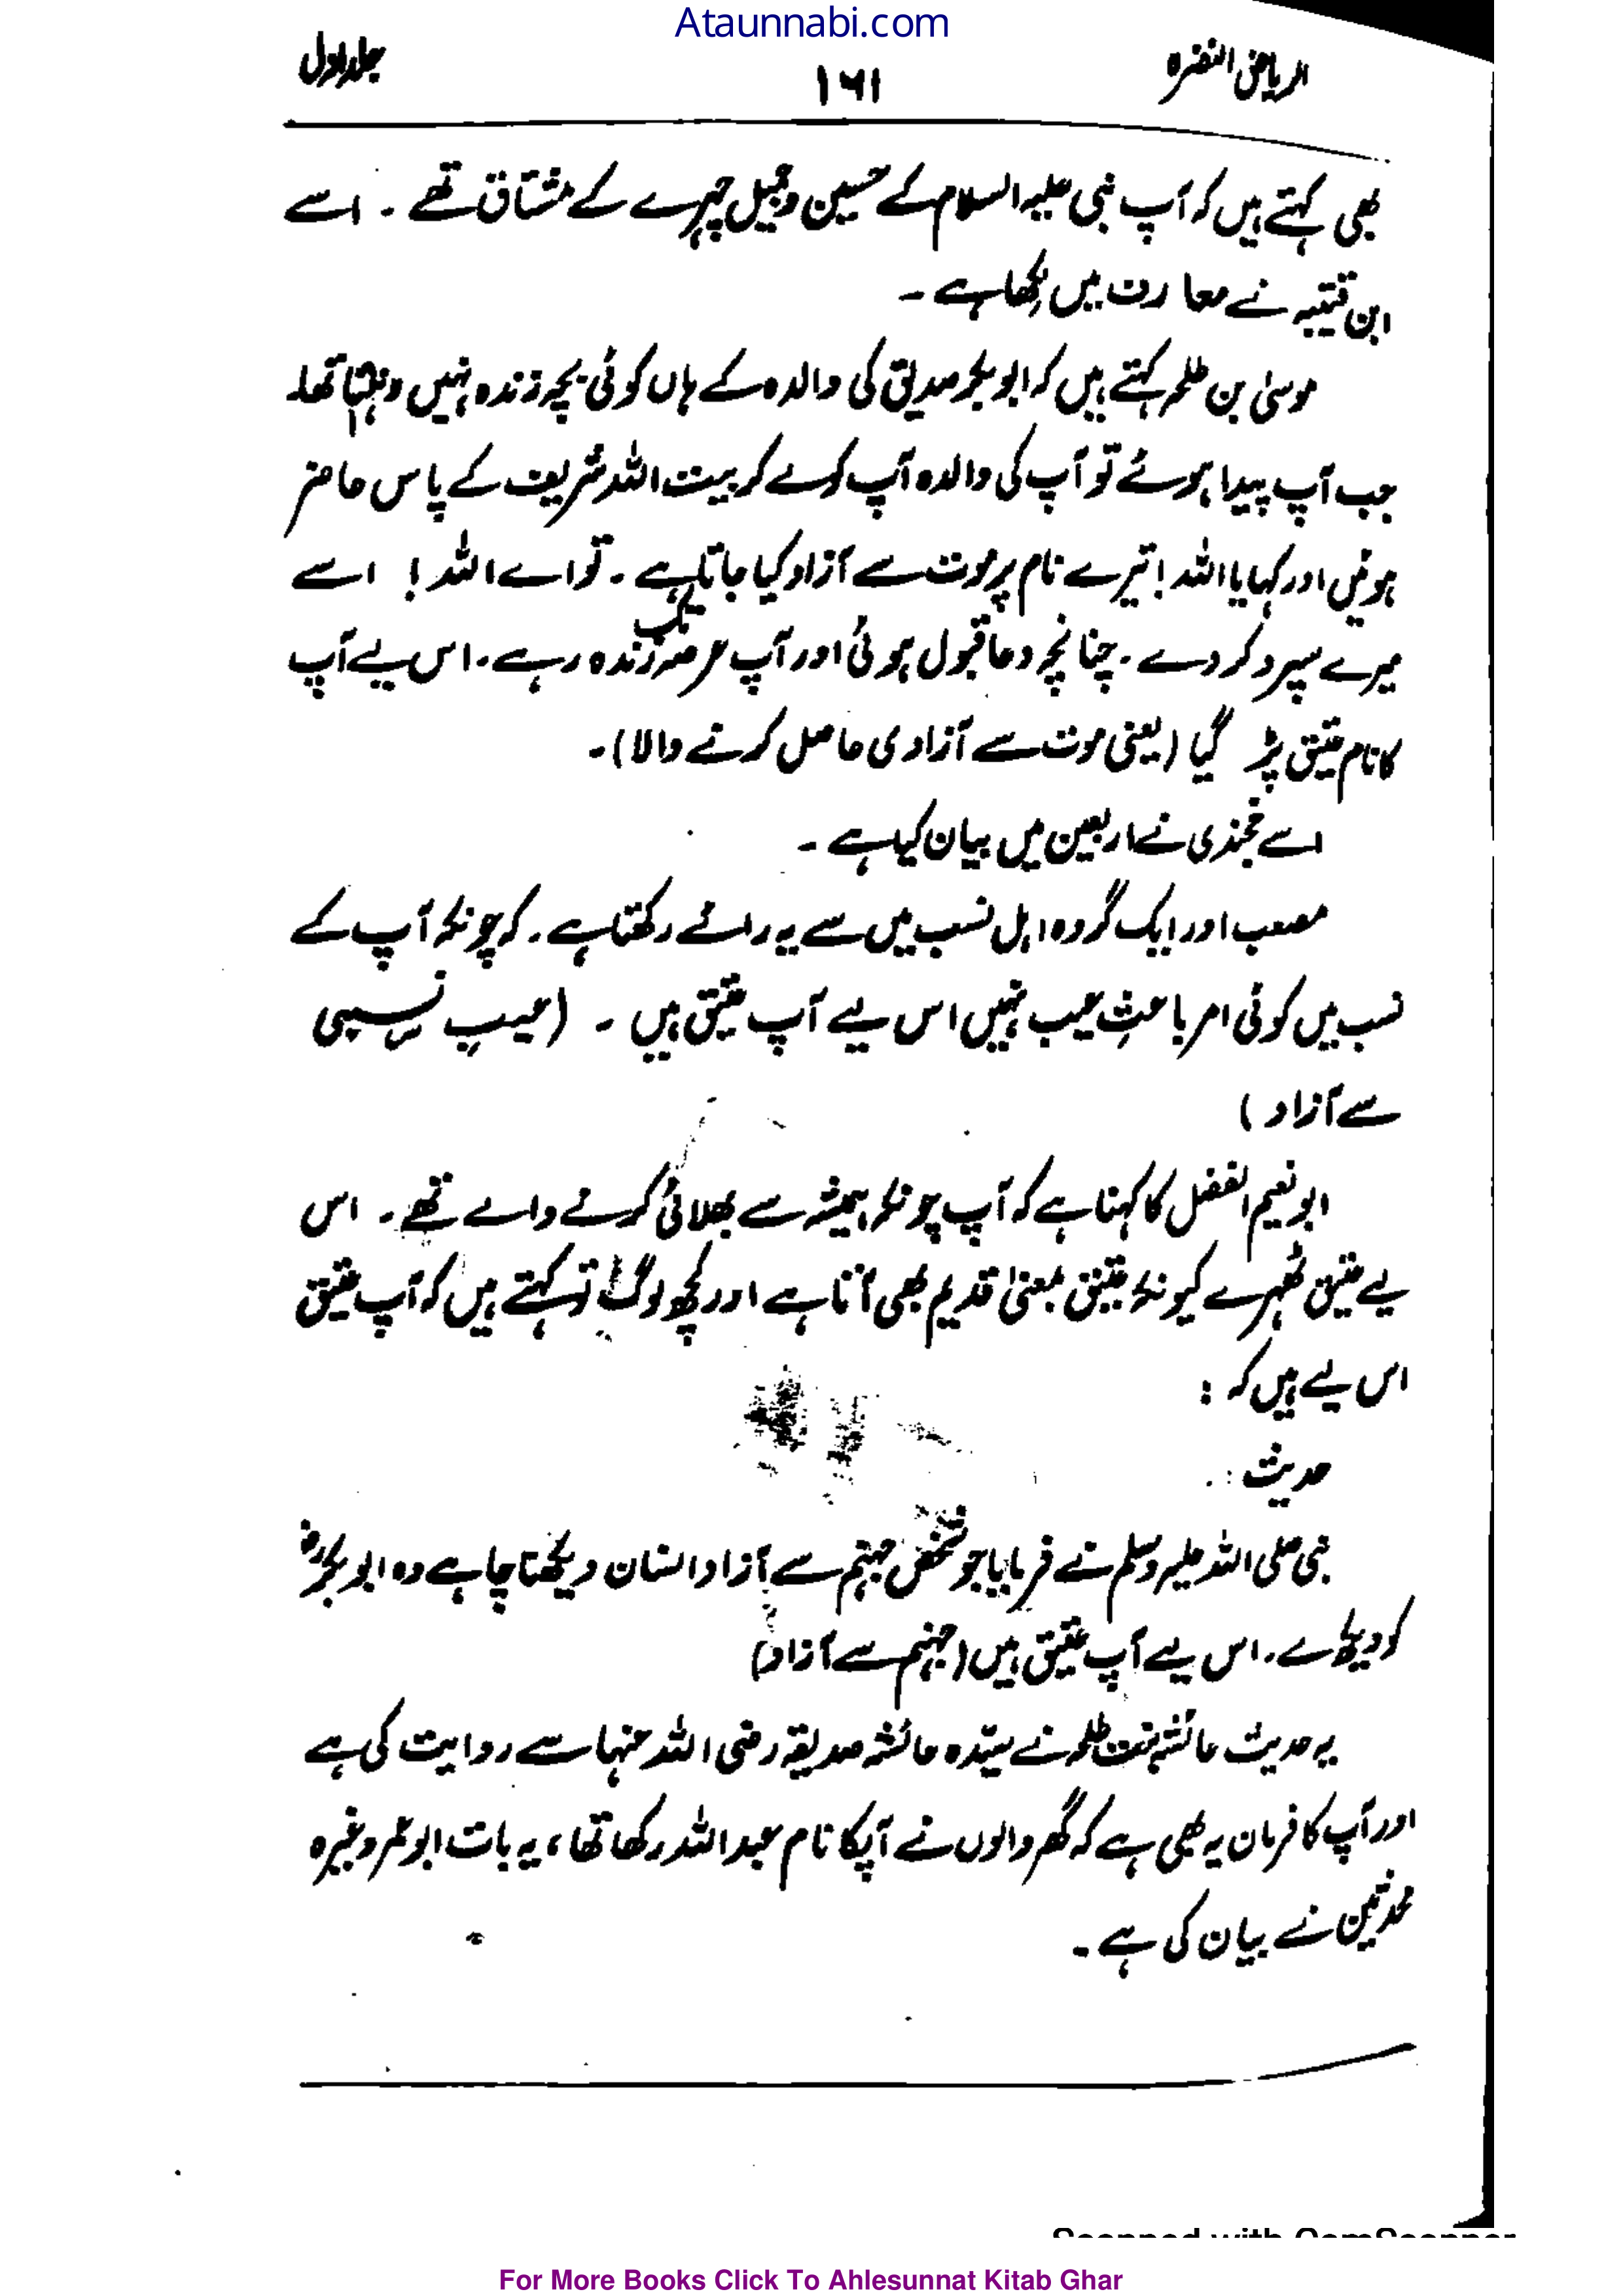 Ataunnabi.com
الریاض النضرہ
۱۶۱
جلد اول
بھی کہتے ہیں کہ آپ نبی علیہ السلام کے حسین و جمیل چہرے کے مشتاق تھے ۔ اسے
ابن قتیبہ نے معارف میں لکھا ہے ۔
موسیٰ بن طلحہ کہتے ہیں کہ ابو بکر صدیق کی والدہ کے ہاں کوئی بچہ زندہ نہیں رہتا تھا۔
جب آپ پیدا ہوئے تو آپ کی والدہ آپ کو لے کر بیت اللہ شریف کے پاس حاضر
ہوئیں اور کہا یا اللہ ! تیرے نام پر موت سے آزاد کیا جاتا ہے ۔ تو اے اللہ ! اسے
میرے سپرد کر دے ۔ چنانچہ دعا قبول ہوئی اور آپ عرصہ تک زندہ رہے ۔ اس لیے آپ
کا نام عتیق پڑ گیا (یعنی موت سے آزادی حاصل کرنے والا) ۔
اسے خجندی نے اربعین میں بیان کیا ہے ۔
مصعب اور ایک گروہ اہل نسب میں سے یہ رائے رکھتا ہے ۔ کہ چونکہ آپ کے
نسب میں کوئی امر باعثِ عیب نہیں اس لیے آپ عتیق ہیں ۔ (عیبِ نسبی
سے آزاد )
ابو نعیم الفضل کا کہنا ہے کہ آپ چونکہ ہمیشہ سے بھلائی کرنے والے تھے ۔ اس
لیے عتیق ٹھہرے کیونکہ عتیق بمعنیٰ قدیم بھی آتا ہے اور کچھ لوگ تو کہتے ہیں کہ آپ عتیق
اس لیے ہیں کہ :
حدیث :
نبی صلی اللہ علیہ وسلم نے فرمایا جو شخص جہنم سے آزاد انسان دیکھنا چاہے وہ ابو بکرؓ
کو دیکھ لے ۔ اس لیے آپ عتیق ہیں (جہنم سے آزاد)
یہ حدیث عائشہ بنت طلحہ نے سیّدہ عائشہ صدیقہ رضی اللہ عنہا سے روایت کی ہے
اور آپ کا فرمان یہ بھی ہے کہ گھر والوں نے آپکا نام عبد اللہ رکھا تھا ، یہ بات ابو عمر وغیرہ
محدثین نے بیان کی ہے ۔
Scanned with CamScanner
For More Books Click To Ahlesunnat Kitab Ghar